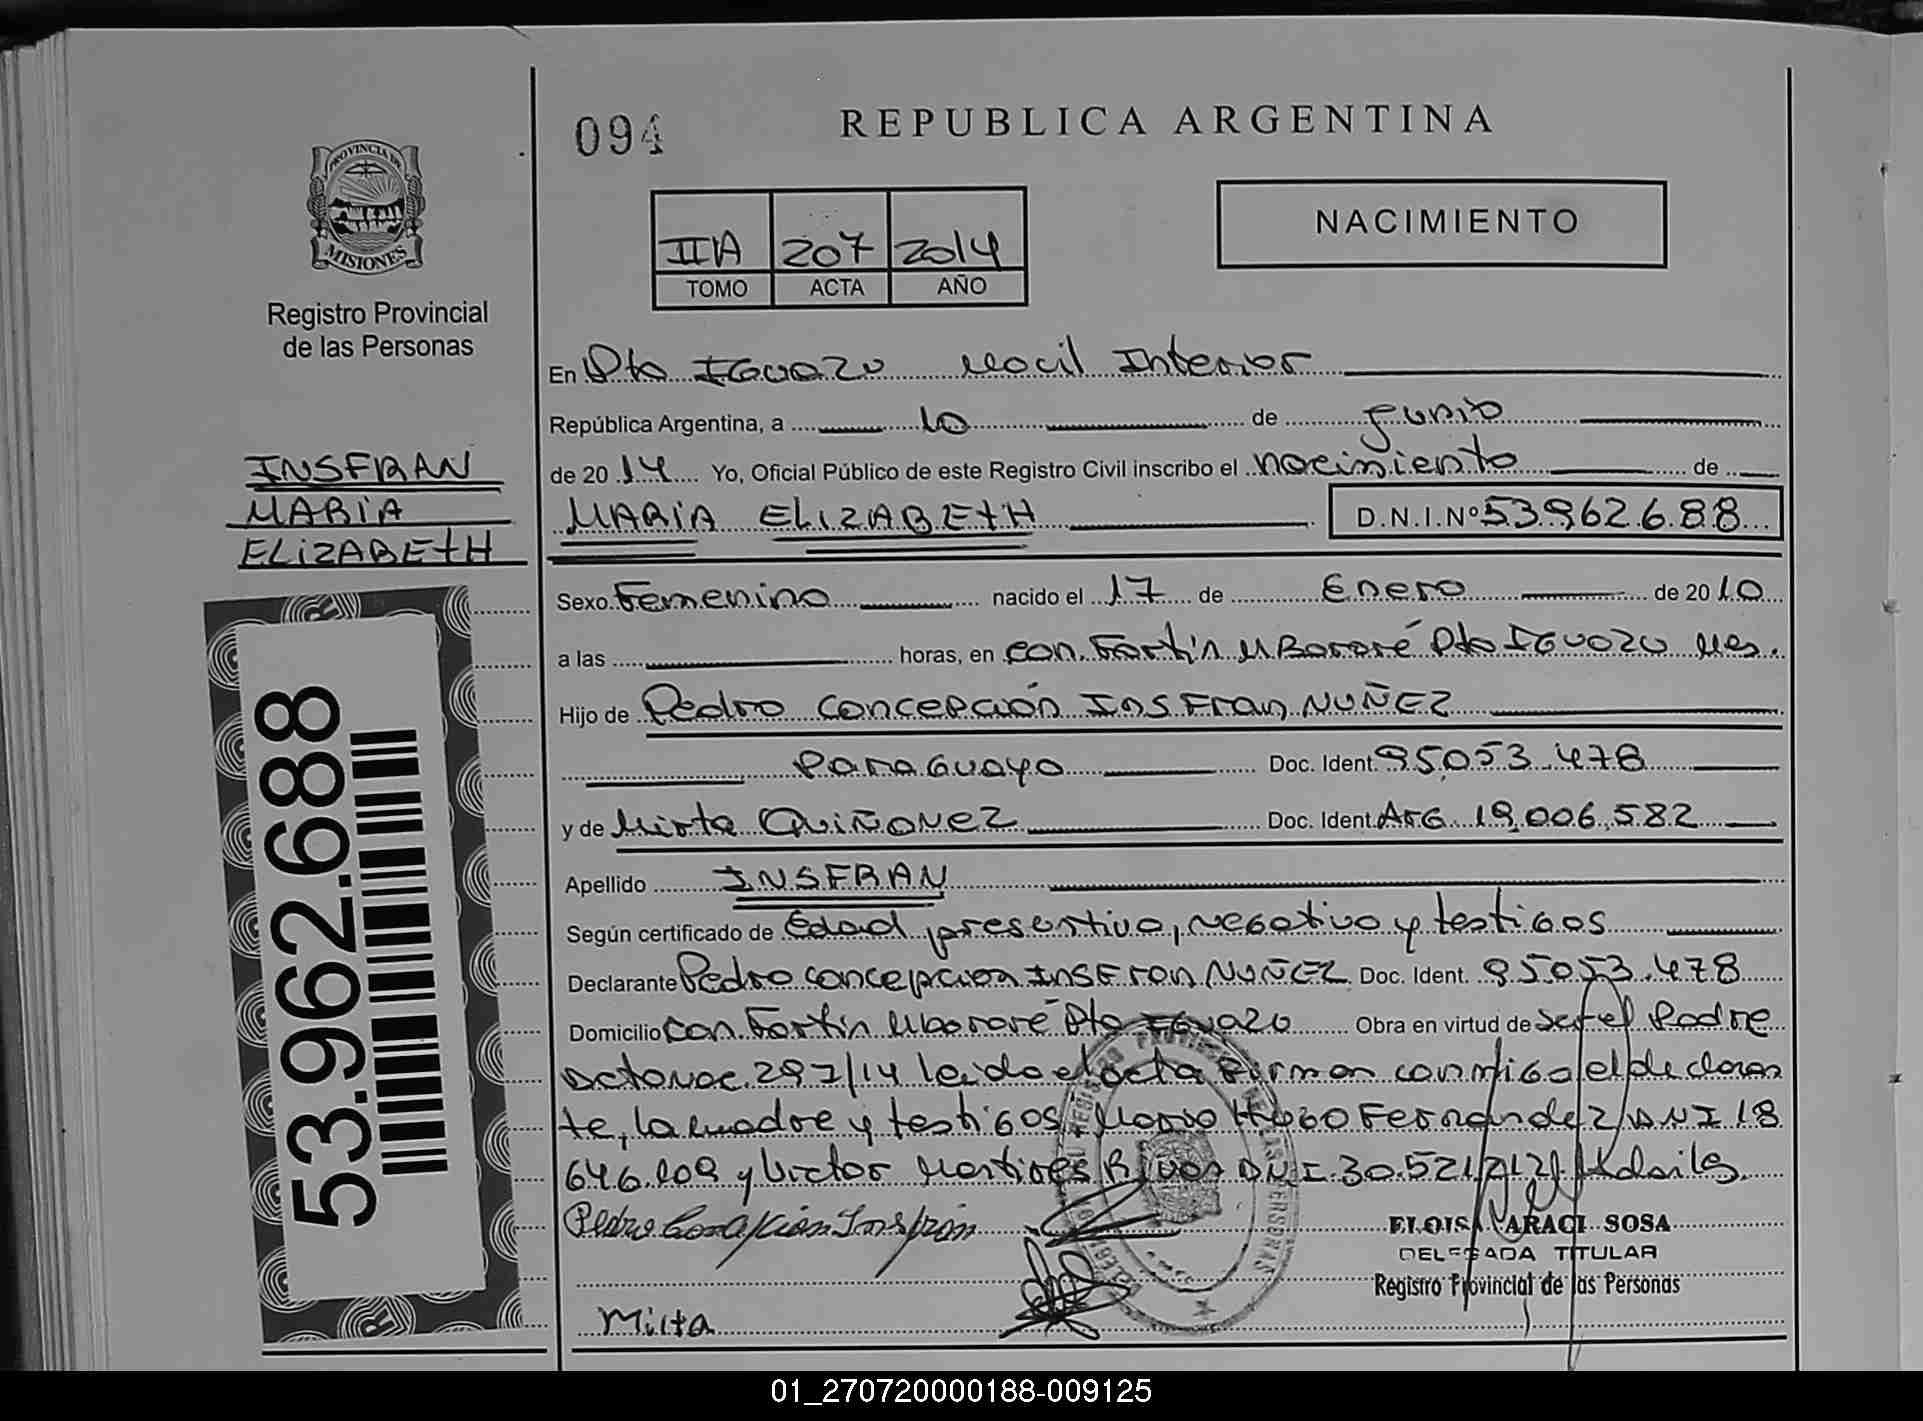 094
REPUBLICA ARGENTINA
PROVINCIA DE
MISIONES
Registro Provincial
de las Personas
IIA 207 2014
TOMO ACTA AÑO
NACIMIENTO
En Pto IGUAZU Movil Interior
República Argentina, a 10 de junio
de 2014 Yo, Oficial Público de este Registro Civil inscribo el nacimiento de
MARIA ELIZABETH D.N.I.Nº 53.962.688
INSFRAN
MARIA
ELIZABETH
Sexo Femenino nacido el 17 de Enero de 2010
a las horas, en con. Fortín MBororé Pto IGUAZU Mes.
Hijo de Pedro Concepción INSFran NUÑEZ
Paraguayo Doc. Ident. 95.053.478
y de Mirta QUIÑONEZ Doc. Ident. Arg 19.006.582
Apellido INSFRAN
Según certificado de Edad presuntiva, negativo y testigos
Declarante Pedro concepcion INSFran NUÑEZ Doc. Ident. 95.053.478
Domicilio con. Fortín Mbororé Pto IGUAZU Obra en virtud de ser el Padre
acta nac. 297/14 leida el acta Firman conmigo el declaran
te, la madre y testigos, Mario Hugo Fernandez DNI 18
646.109 y Victor Martires Rivas D.N.I. 30.521.212
Pedro Concepción Insfrán
ELOISA ARACI SOSA
DELEGADA TITULAR
Registro Provincial de las Personas
Mirta
53.962.688
01_270720000188-009125